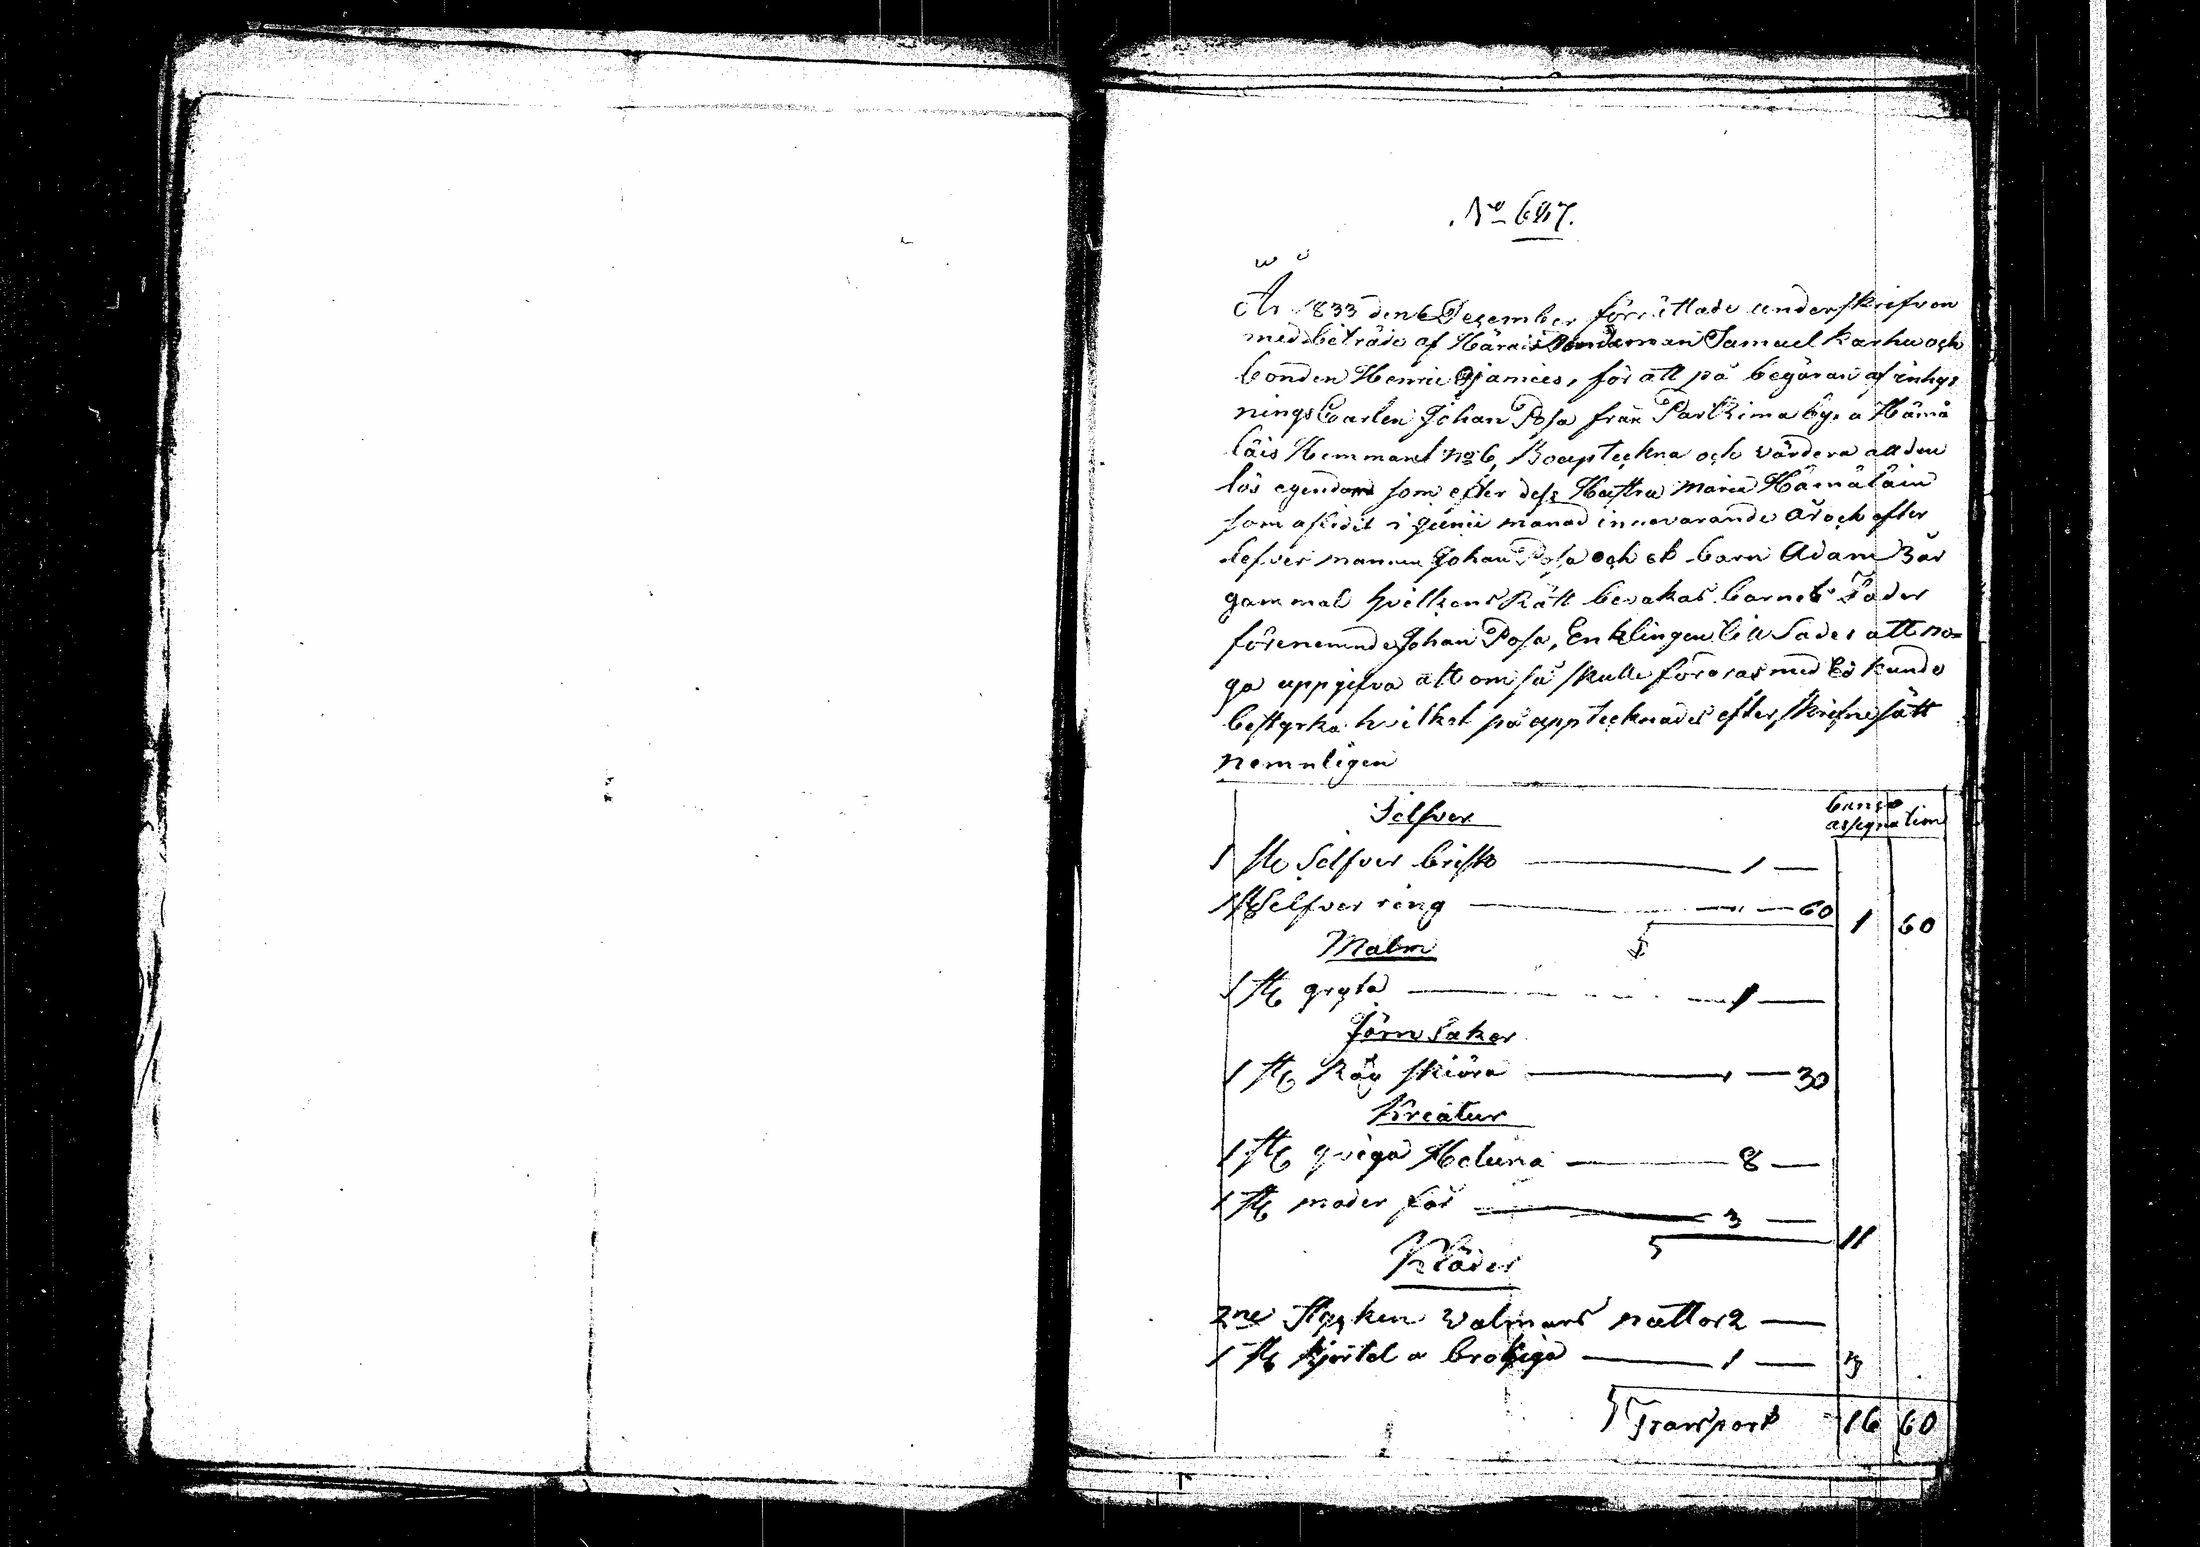 No 687.
År 1833 den 6 Dezember förrättade underskrifven
med biträde af Härads Nämdeman Samuel Karhu och
bonden Henric, för att på begäran af inhys
nings Carlen Johan Posa från Partkima by, a Hämä
läis Hemmanet No 6, Boupteckna och värdera all den
lös egendom som efter dess Hustru Maria Hämäläin
som aflidit i Junii månad innevarande år och efter
lefver mannen Johan Posa och et barn Adam 3 år
gammal hvilkens Rätt bevakas barnets Fader
förenemnde Johan Posa, Enklingen tillsades att no=
ga uppgifva att om så skulle fordras med Ed kunde
bestyrka hvilket på upptecknades efter skrifne sätt
nemnligen
Selfver
banco
assignation
1 st Selfver brisk — 1 —
1 st Selfver ring — " — 60 1 60
Malm
1 st gryta — 1 —
Järn Saker
1 st Råg skiära — " — 30
Kreatur
1 st qviga Heluna — 8 —
1 st moder får — 3 — 11
Kläder
2ne stycken walmars nattor 2 —
1 st kjortel a brokiga — 1 — 3
Transport 16 60